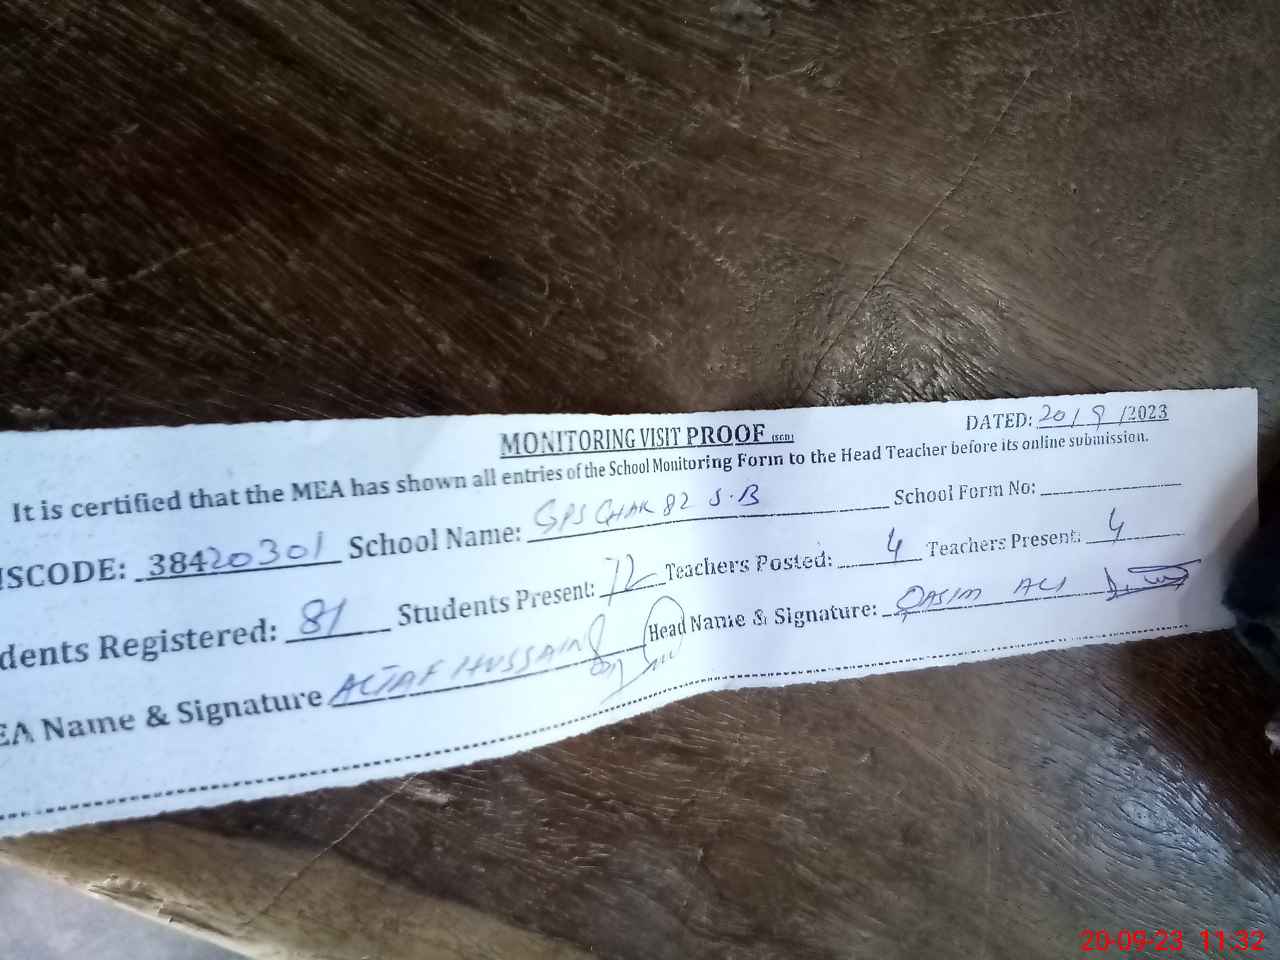 MONITORING VISIT PROOF (SGD)
DATED: 20/9/2023
It is certified that the MEA has shown all entries of the School Monitoring Form to the Head Teacher before its online submission.
ISCODE: 38420301 School Name: GPS CHAK 82 S.B School Form No:
dents Registered: 81 Students Present: 72 Teachers Posted: 4 Teachers Present: 4
EA Name & Signature ALTAF HUSSAIN Head Name & Signature: QASIM ALI
20-09-23 11:32